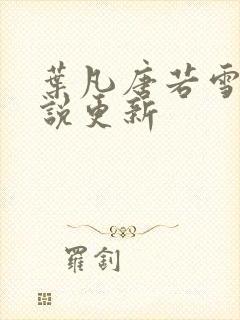 葉凡唐若雪
說更新
羅釗